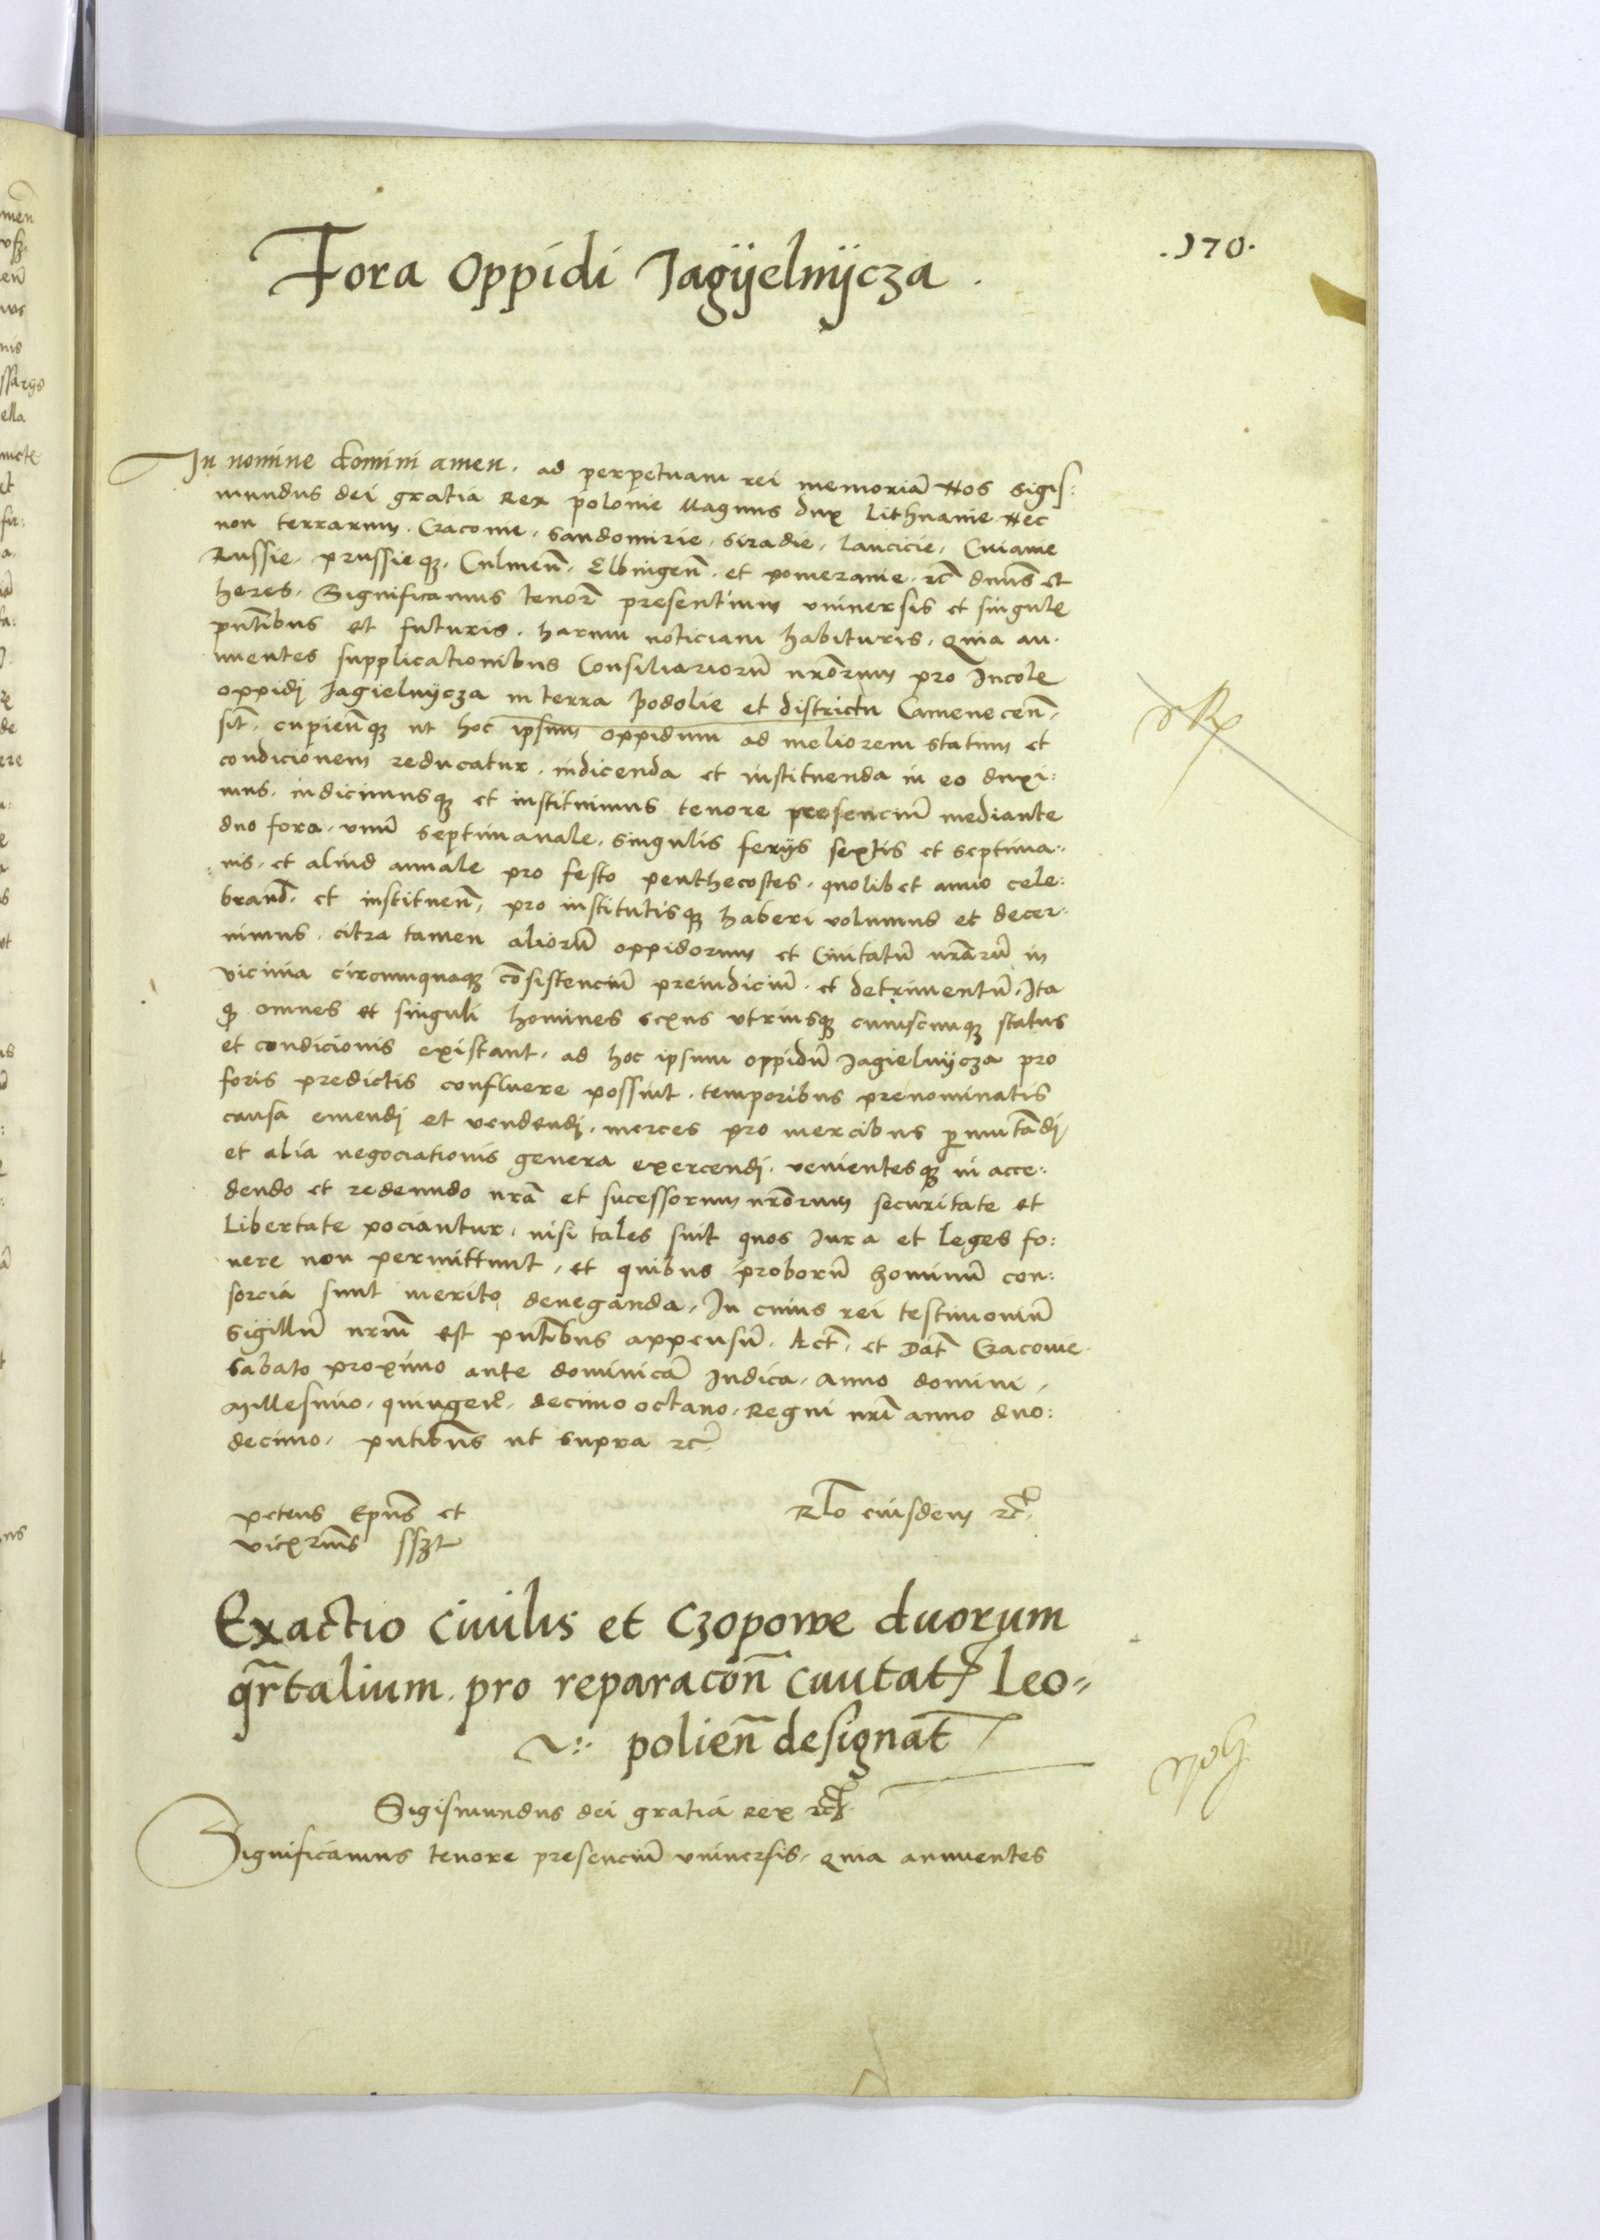 .170.
Fora Oppidi Jagÿelnÿcza .
In nomine domini amen. ad perpetuam rei memoriā Nos Sigis:
mundus dei gratia Rex polonie Magnus dux Lithuanie Nec
non terrarum. Cracovie. Sandomirie. Siradie. Lancicie. Cuiavie
Russie. prussieq3. Culmen̄. Elbingen̄. et pomeranie. zc̄ dnus̄ et
heres. Significamus tenor̄ presentium universis et singulę
pn̄tibus et futuris. harum noticiam habituris. quia an.
nuentes supplicationibus Consiliariorū nr̄orum pro Incolę
oppidi Jagielnÿcza in terra Podolie et districtu Camenecen̄.
sit̄. cupien̄q3 ut hoc ipsum oppidum ad meliorem statum et
condicionem reducatur. indicenda et instituenda in eo duxi:
mus. indicimusq3 et instituimus tenore presenciū mediante
duo fora. unū septimanale. singulis ferÿs sextis et septima:
nis. et aliud annale pro festo penthecostes. quolibet anno cele:
brand̄. et instituen̄. pro institutisq3 haberi volumus et decer:
nimus. citra tamen aliorū oppidorum et Civitatū nr̄arū in
vicinia circumquaq3 cōsistenciū preiudiciū. et detrimentū. Ita
q̄ omnes et singuli homines sexus utriusq3 cuiuscumq3 status
et condicionis existant. ad hoc ipsum oppidū Jagielnÿcza pro
foris predictis confluere possint. temporibus prenominatis
causa emendi et vendendi. merces pro mercibus p̄mutādi
et alia negociationis genera exercendi. venientesq3 in acce:
dendo et redeundo nr̄a et sucessorum nr̄orum securitate et
Libertate pociantur. nisi tales sint quos Iura et leges fo:
vere non permittunt. et quibus proborū hominū con:
sorcia sunt merito deneganda. In cuius rei testimoniū
Sigillū nrm̄ est pn̄tibus appensū. Act̄. et Dat̄ Cracovie.
Sabato proximo ante dominicā Iudica. Anno domini.
Millesimo. quingen̄. decimo octavo. Regni nr̄i anno duo:
decimo. pn̄tibus ut supra zc̄
petrus Epus̄ et
vicxrius̄ sszt
Rlo̅ eiusdem zc̄.
Exactio Civilis et Czopowe duorum
qr̄talium. pro reparacōn̄ Civitatę Leo=
polien̄ designat̄
Sigismundus dei gratia Rex zc̄
Significamus tenore presenciū universis. quia annuentes